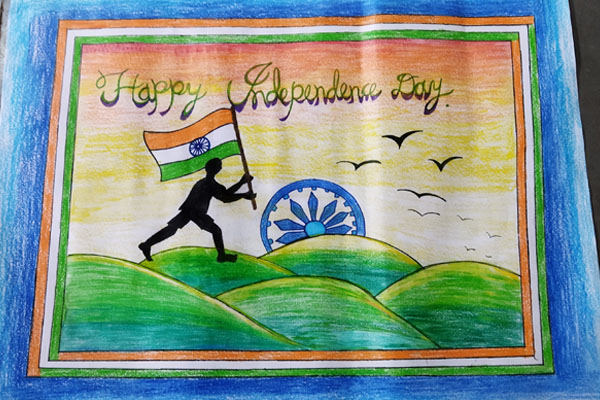 Happy Independence Day.